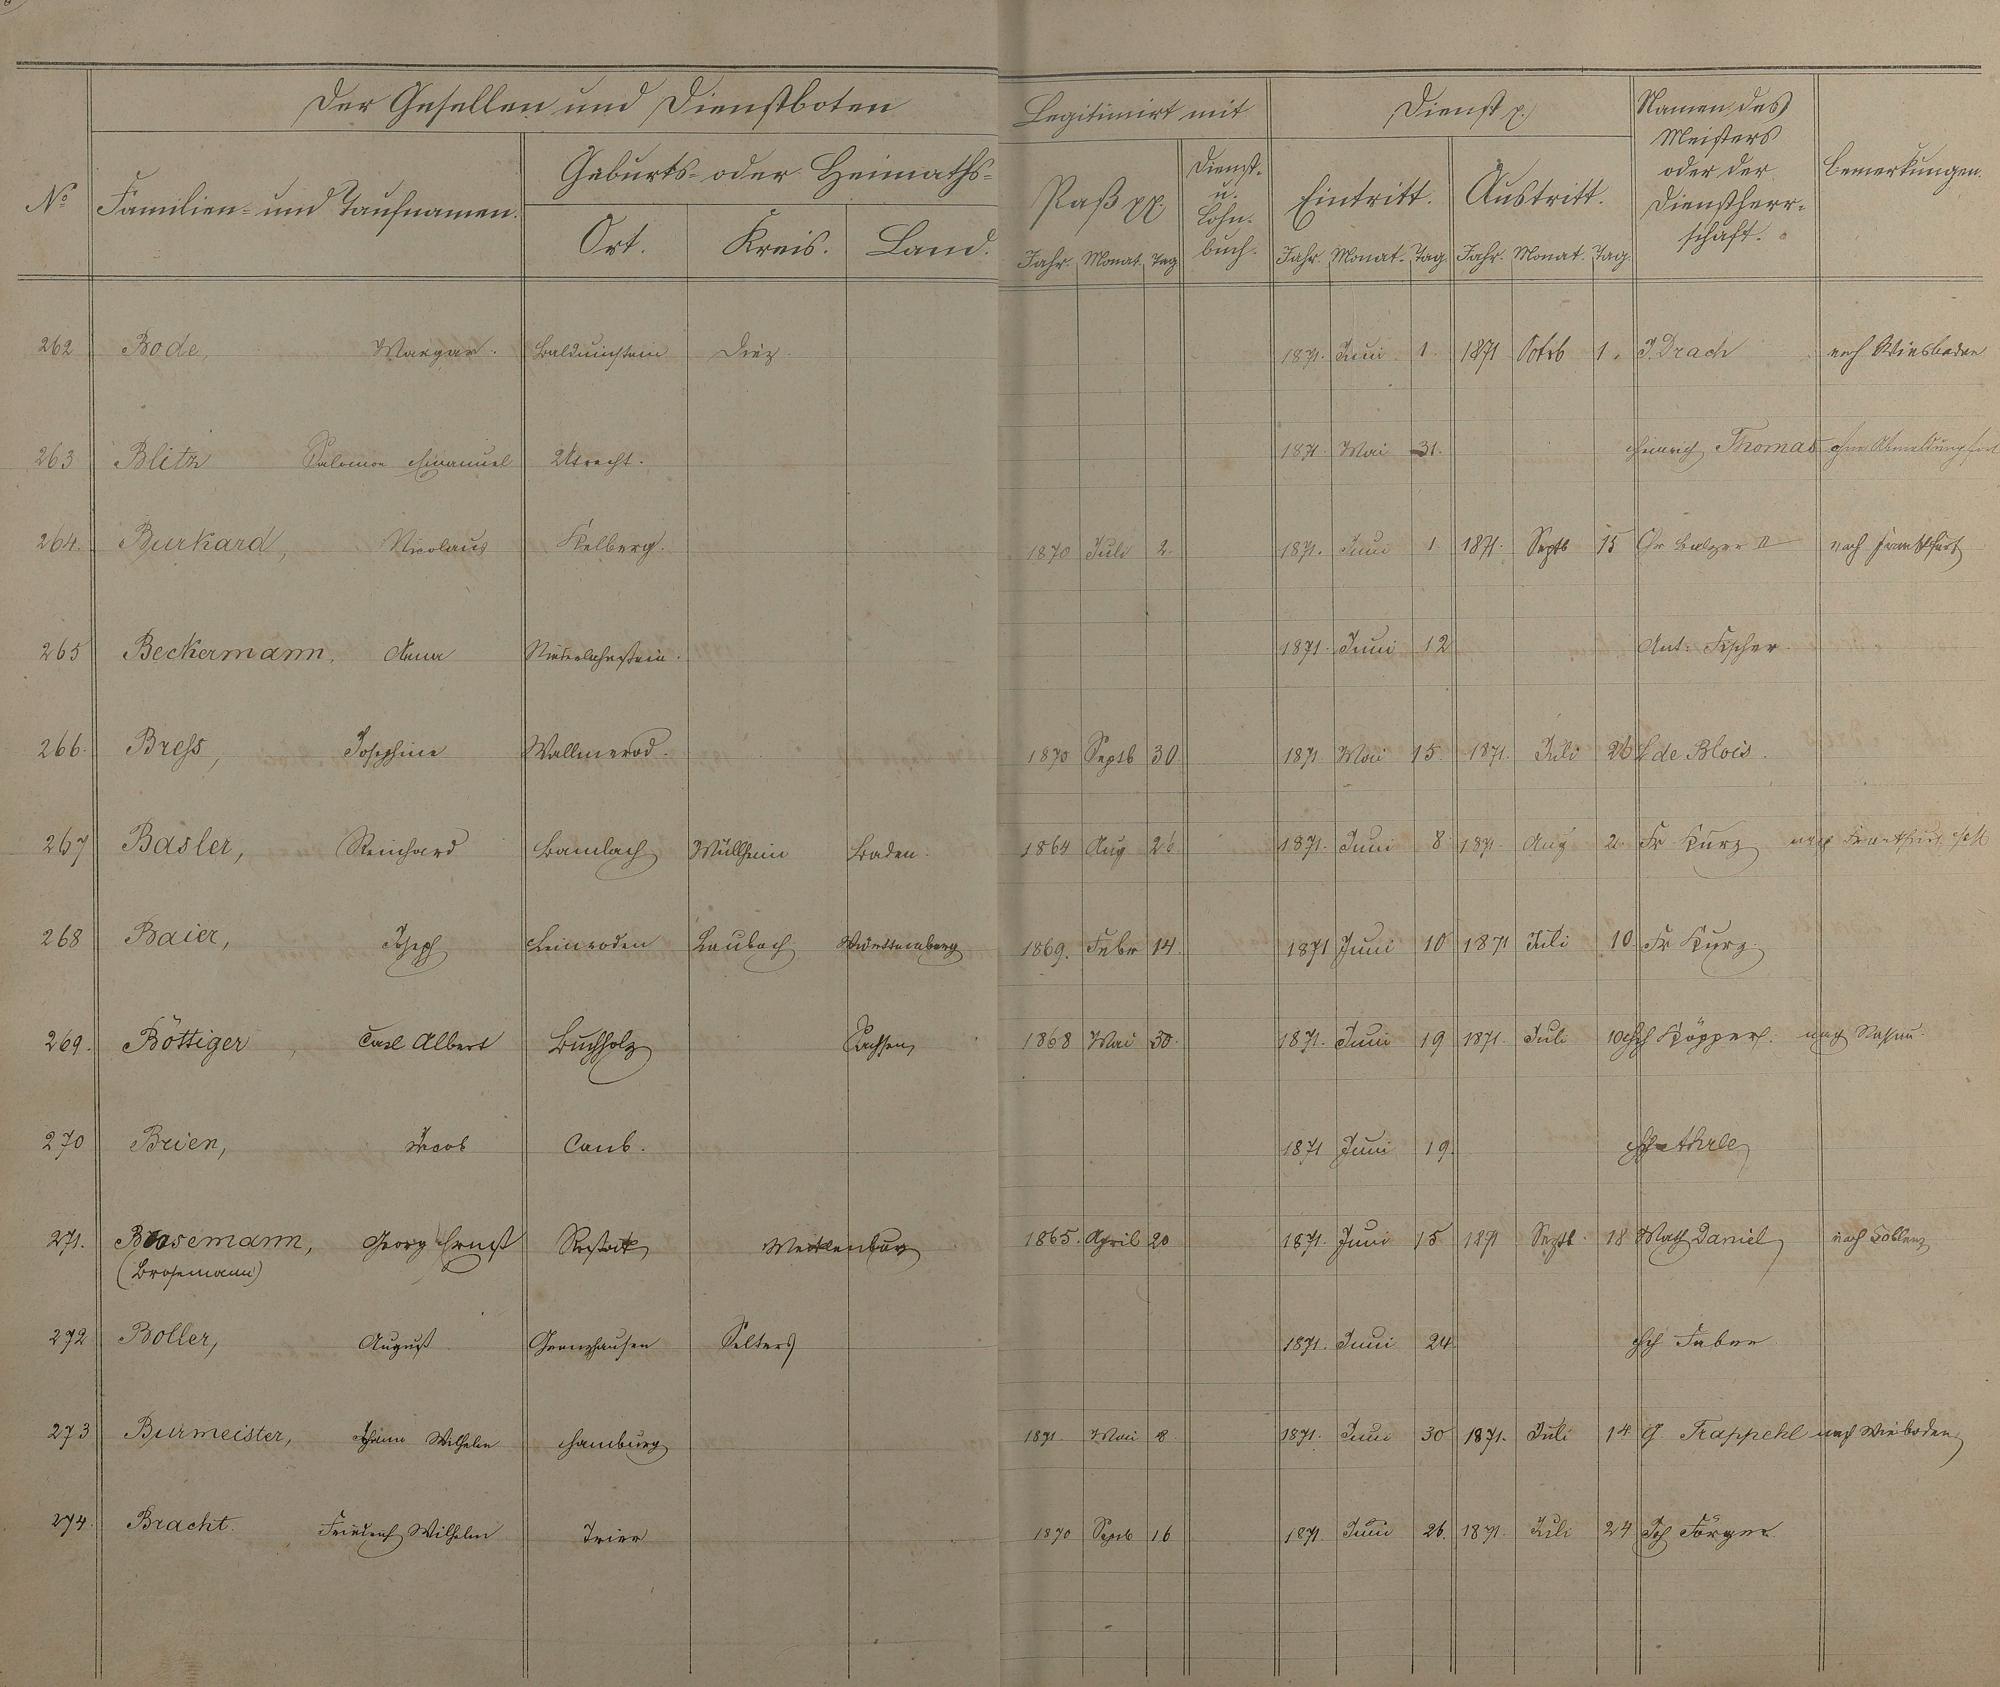 Der Gesellen und Dienstboten Legitimirt mit Dienst p. Namen des Meisters oder der Dienstherrschaft. Bemerkungen.
No Familien- und Taufnamen. Geburts- oder Heimaths- Paß pp. Dienst- u. Lohnbuch. Eintritt. Austritt.
Ort. Kreis. Land. Jahr. Monat. Tag Jahr. Monat. Tag. Jahr. Monat. Tag.
262 Bode, Margar. Balduinstein Diez. 1871. Juni 1. 1871 Octob 1. J. Drach nach Wiesbaden
263 Blitz Salomon Emanuel Utrecht. 1871. Mai 31. Heinrich Thomas ohne Abmeldung fort
264. Burkard, Nicolaus Kelberg. 1870 Juli 2. 1871. Juni 1 1871. Septb 15 Chr Balzer II nach Frankfurt
265 Beckermann, Anna Niederlahnstein. 1871. Juni 12 Ant: Fischer.
266. Bress, Josephine Wallmerod. 1870 Septb 30. 1871. Mai 15. 1871. Juli 26 de Blois.
267 Basler, Reinhard Bamlach Müllheim Baden. 1864 Aug 26 1871. Juni 8 1871. Aug 2. Fr Kurz nach Frankfurt
268 Baier, Joseph Leinroden Laubach Württemberg 1869. Febr 14. 1871 Juni 10 1871 Juli 10 Fr Kurz.
269. Böttiger, Carl Albert Buchholz Sachsen 1868 Mai 30. 1871. Juni 19 1871. Juli 10 Hch Köpper. nach Nassau.
270 Brien, Jacob Caub. 1871 Juni 19.
271. Boosemann, Georg Ernst Rostock Mecklenburg 1865. April 20 1871. Juni 15 1871 Septb. 18 Math Daniel nach Coblenz
(Brosemann)
272 Boller, August Grenzhausen Selters 1871. Juni 24. Hch Faber
273 Burmeister, Wilhelm Hamburg 1871 Mai 8 1871. Juni 30 1871. Juli 14 G. Trappehl nach Wiesbaden
274. Bracht. Friedrich Wilhelm Trier 1870 Septb 16 1871. Juni 26. 1871. Juli 24 Jos Förger